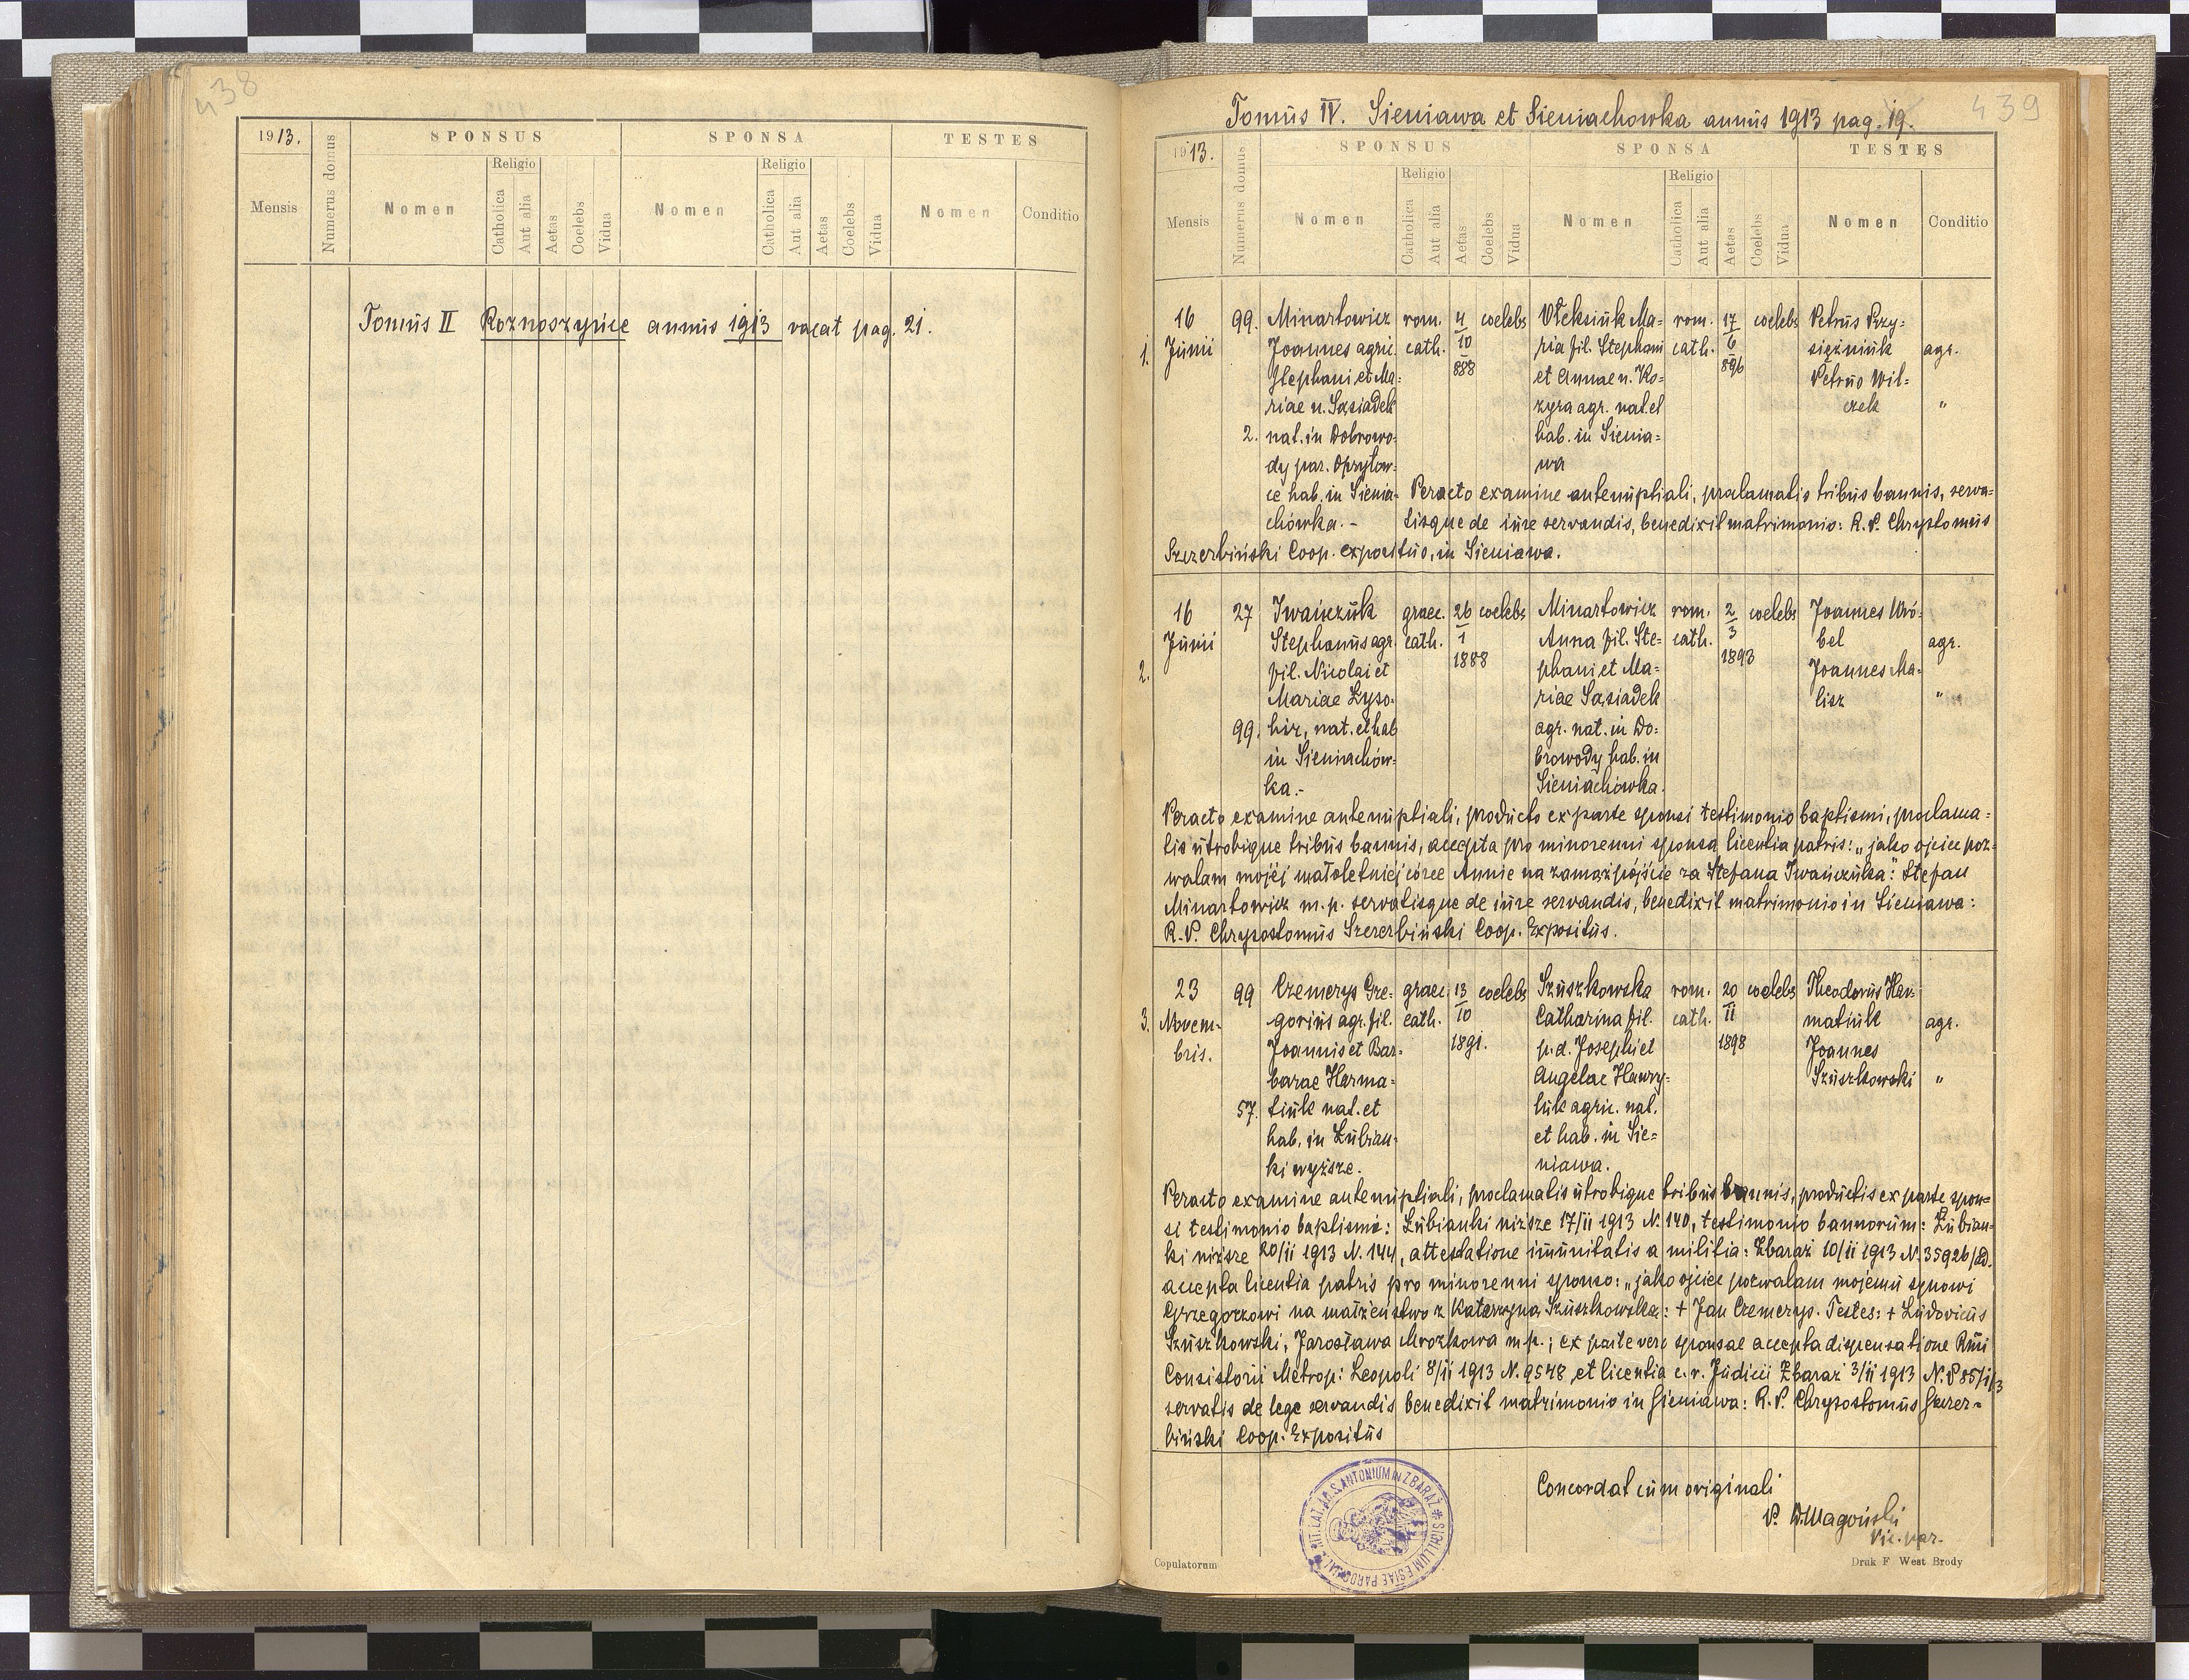 438
1913.
SPONSUS
SPONSA
TESTES
Mensis
Numerus domus
Nomen
Religio
Catholica
Aut alia
Aetas
Coelebs
Vidua
Nomen
Religio
Catholica
Aut alia
Aetas
Coelebs
Vidua
Nomen
Conditio
Tomus II Roznoszyńce annus 1913 vacat pag. 21.
439
Tomus IV. Sieniawa et Sieniachowka annus 1913 pag. 19.
1913.
SPONSUS
SPONSA
TESTES
Mensis
Numerus domus
Nomen
Religio
Catholica
Aut alia
Aetas
Coelebs
Vidua
Nomen
Religio
Catholica
Aut alia
Aetas
Coelebs
Vidua
Nomen
Conditio
1.
16
Junii
99.
2.
Minartowicz
Joannes agric.
Stephani et Ma=
riae n. Sąsiadek
nat. in Dobrowo-
dy par. Opryłow-
ce hab. in Sienia-
chówka. -
rom.
cath.
4
10
888
coelebs
Oleksiuk Ma=
ria fil. Stephani
et Annae n. Ko=
zyra agr. nat. et
hab. in Sienia=
wa
rom.
cath.
17
6
896
coelebs
Petrus Przy=
siężniuk
Petrus Wil=
czek
agr.
"
Peracto examine antenuptiali, proclamatis tribus bannis, serva=
tisque de iure servandis, benedixit matrimonio: R. P. Chryptomus
Szczerbiński Coop. expositus, in Sieniawa.
2.
16
Junii
27
99.
Iwańczuk
Stephanus agr.
fil. Nicolai et
Mariae Łyso-
hir, nat. et hab
in Sieniachów-
ka.-
graec.
cath.
26
1
1888
coelebs
Minartowicz
Anna fil. Ste=
phani et Ma=
riae Sąsiadek
agr. nat. in Do=
browody hab. in
Sieniachówka.
rom.
cath.
2
3
1893
coelebs
Joannes Wró-
bel
Joannes Ma-
lisz
agr.
"
Peracto examine antenuptiali, producto ex parte sponsi testimonio baptismi, proclama=
tis utrobique tribus bannis, accepta pro minorenni sponsa licentia patris: „jako ojciec poz=
walam mojéj małoletniéj córce Annie na zamążpójście za Stefana Iwańczuka": Stefan
Minartowicz m. p. servatisque de iure servandis, benedixit matrimonio in Sieniawa:
R. P. Chrysostomus Szczerbiński Coop. Expositus.
3.
23
Novem-
bris.
99
57.
Czemerys Gre=
gorius agr. fil.
Joannis et Bar=
barae Harma=
tiuk nat. et
hab. in Łubian-
ki wyższe.
graec.
cath.
13
10
1891.
coelebs
Szuszkowska
Catharina fil.
p. d. Josephi et
Angelae Hawry=
luk agric. nat.
et hab. in Sie=
niawa.
rom.
cath.
20
11
1898
coelebs
Theodorus Har-
matiuk
Joannes
Szuszkowski
agr.
"
Peracto examine antenuptiali, proclamatis utrobique tribus bannis, productis ex parte spon=
si testimonio baptismi: Łubianki niższe 17/11 1913 N. 140, testimonio bannorum: Łubian-
ki niższe 20/11 1913 N. 144, attestatione imunitatis a militia: Zbaraż 10/11 1913 N. 35926/
accepta licentia patris pro minorenni sponso: „jako ojciec pozwalam mojemu synowi
Grzegorzowi na małżeństwo z Katarzyną Szuszkowską: + Jan Czemerys. Testes: + Ludovicus
Szuszkowski, Jarosława Mrozkowa m. p.; ex parte vero sponsae accepta dispensatione Rmi
Consistorii Metrop: Leopoli 8/11 1913 N. 9548 et licentia c. r. Judicii Zbaraż 3/11 1913 N. P 85/1/3
servatis de lege servandis benedixit matrimonio in Sieniawa: R. P. Chrysostomus Szczer-
biński Coop. Expositus
Concordat cum originali
Vic. par.
Copulatorum
Druk F West Brody